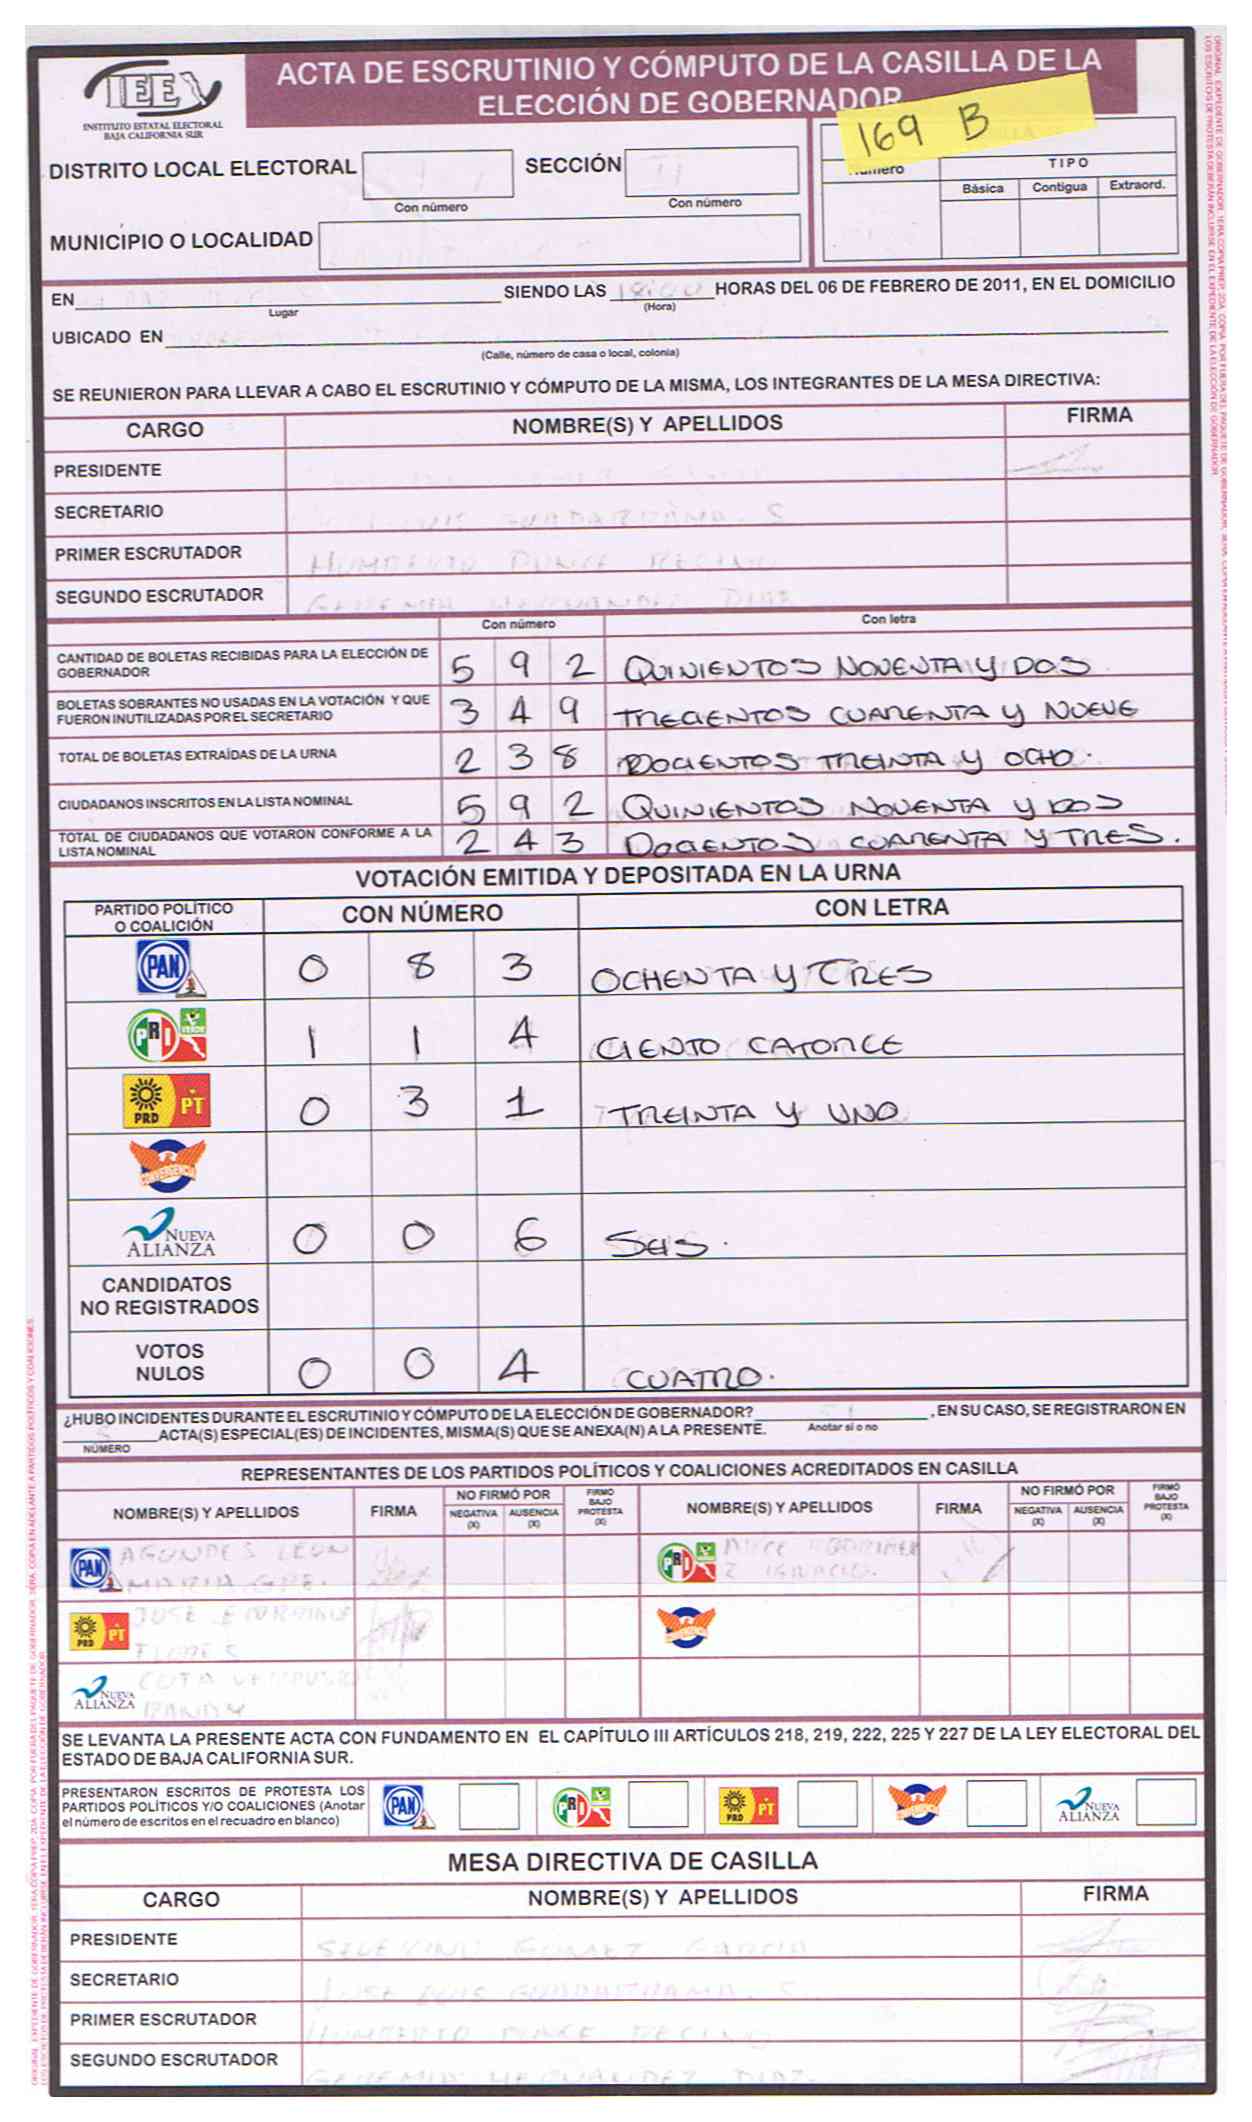 IEE
INSTITUTO ESTATAL ELECTORAL
BAJA CALIFORNIA SUR
ACTA DE ESCRUTINIO Y CÓMPUTO DE LA CASILLA DE LA
ELECCIÓN DE GOBERNADOR
169 B
DISTRITO LOCAL ELECTORAL
Con número
SECCIÓN
Con número
TIPO
Básica Contigua Extraord.
MUNICIPIO O LOCALIDAD
EN SIENDO LAS 18:00 HORAS DEL 06 DE FEBRERO DE 2011, EN EL DOMICILIO
Lugar (Hora)
UBICADO EN
(Calle, número de casa o local, colonia)
SE REUNIERON PARA LLEVAR A CABO EL ESCRUTINIO Y CÓMPUTO DE LA MISMA, LOS INTEGRANTES DE LA MESA DIRECTIVA:
CARGO NOMBRE(S) Y APELLIDOS FIRMA
PRESIDENTE
SECRETARIO LUIS GUADARRAMA. S
PRIMER ESCRUTADOR HUMBERTO PONCE RECINO
SEGUNDO ESCRUTADOR HERNANDEZ DIAZ
Con número Con letra
CANTIDAD DE BOLETAS RECIBIDAS PARA LA ELECCIÓN DE
GOBERNADOR 5 9 2 QUINIENTOS NOVENTA Y DOS
BOLETAS SOBRANTES NO USADAS EN LA VOTACIÓN Y QUE
FUERON INUTILIZADAS POR EL SECRETARIO 3 4 9 TRECIENTOS CUARENTA Y NUEVE
TOTAL DE BOLETAS EXTRAÍDAS DE LA URNA 2 3 8 DOCIENTOS TREINTA Y OCHO.
CIUDADANOS INSCRITOS EN LA LISTA NOMINAL 5 9 2 QUINIENTOS NOVENTA Y DOS
TOTAL DE CIUDADANOS QUE VOTARON CONFORME A LA
LISTA NOMINAL 2 4 3 DOCIENTOS CUARENTA Y TRES.
VOTACIÓN EMITIDA Y DEPOSITADA EN LA URNA
PARTIDO POLÍTICO
O COALICIÓN CON NÚMERO CON LETRA
PAN 0 8 3 OCHENTA Y TRES
PRI VERDE 1 1 4 CIENTO CATORCE
PRD PT 0 3 1 TREINTA Y UNO
CONVERGENCIA
NUEVA
ALIANZA 0 0 6 SEIS.
CANDIDATOS
NO REGISTRADOS
VOTOS
NULOS 0 0 4 CUATRO.
¿HUBO INCIDENTES DURANTE EL ESCRUTINIO Y CÓMPUTO DE LA ELECCIÓN DE GOBERNADOR? SI , EN SU CASO, SE REGISTRARON EN
ACTA(S) ESPECIAL(ES) DE INCIDENTES, MISMA(S) QUE SE ANEXA(N) A LA PRESENTE. Anotar sí o no
NÚMERO
REPRESENTANTES DE LOS PARTIDOS POLÍTICOS Y COALICIONES ACREDITADOS EN CASILLA
NOMBRE(S) Y APELLIDOS FIRMA NO FIRMÓ POR NEGATIVA (X) AUSENCIA (X) FIRMÓ BAJO PROTESTA (X) NOMBRE(S) Y APELLIDOS FIRMA NO FIRMÓ POR NEGATIVA (X) AUSENCIA (X) FIRMÓ BAJO PROTESTA (X)
PAN AGUNDES LEON PRI
MARIA GPE. IGNACIO.
PRD PT JOSE ENRRIQUE
FLORES
NUEVA ALIANZA COTA
RANDY
SE LEVANTA LA PRESENTE ACTA CON FUNDAMENTO EN EL CAPÍTULO III ARTÍCULOS 218, 219, 222, 225 Y 227 DE LA LEY ELECTORAL DEL
ESTADO DE BAJA CALIFORNIA SUR.
PRESENTARON ESCRITOS DE PROTESTA LOS
PARTIDOS POLÍTICOS Y/O COALICIONES (Anotar
el número de escritos en el recuadro en blanco) PAN PRI PRD PT CONVERGENCIA NUEVA ALIANZA
MESA DIRECTIVA DE CASILLA
CARGO NOMBRE(S) Y APELLIDOS FIRMA
PRESIDENTE GOMEZ GARCIA
SECRETARIO JOSE LUIS GUADARRAMA. S
PRIMER ESCRUTADOR HUMBERTO PONCE RECINO
SEGUNDO ESCRUTADOR HERNANDEZ DIAZ